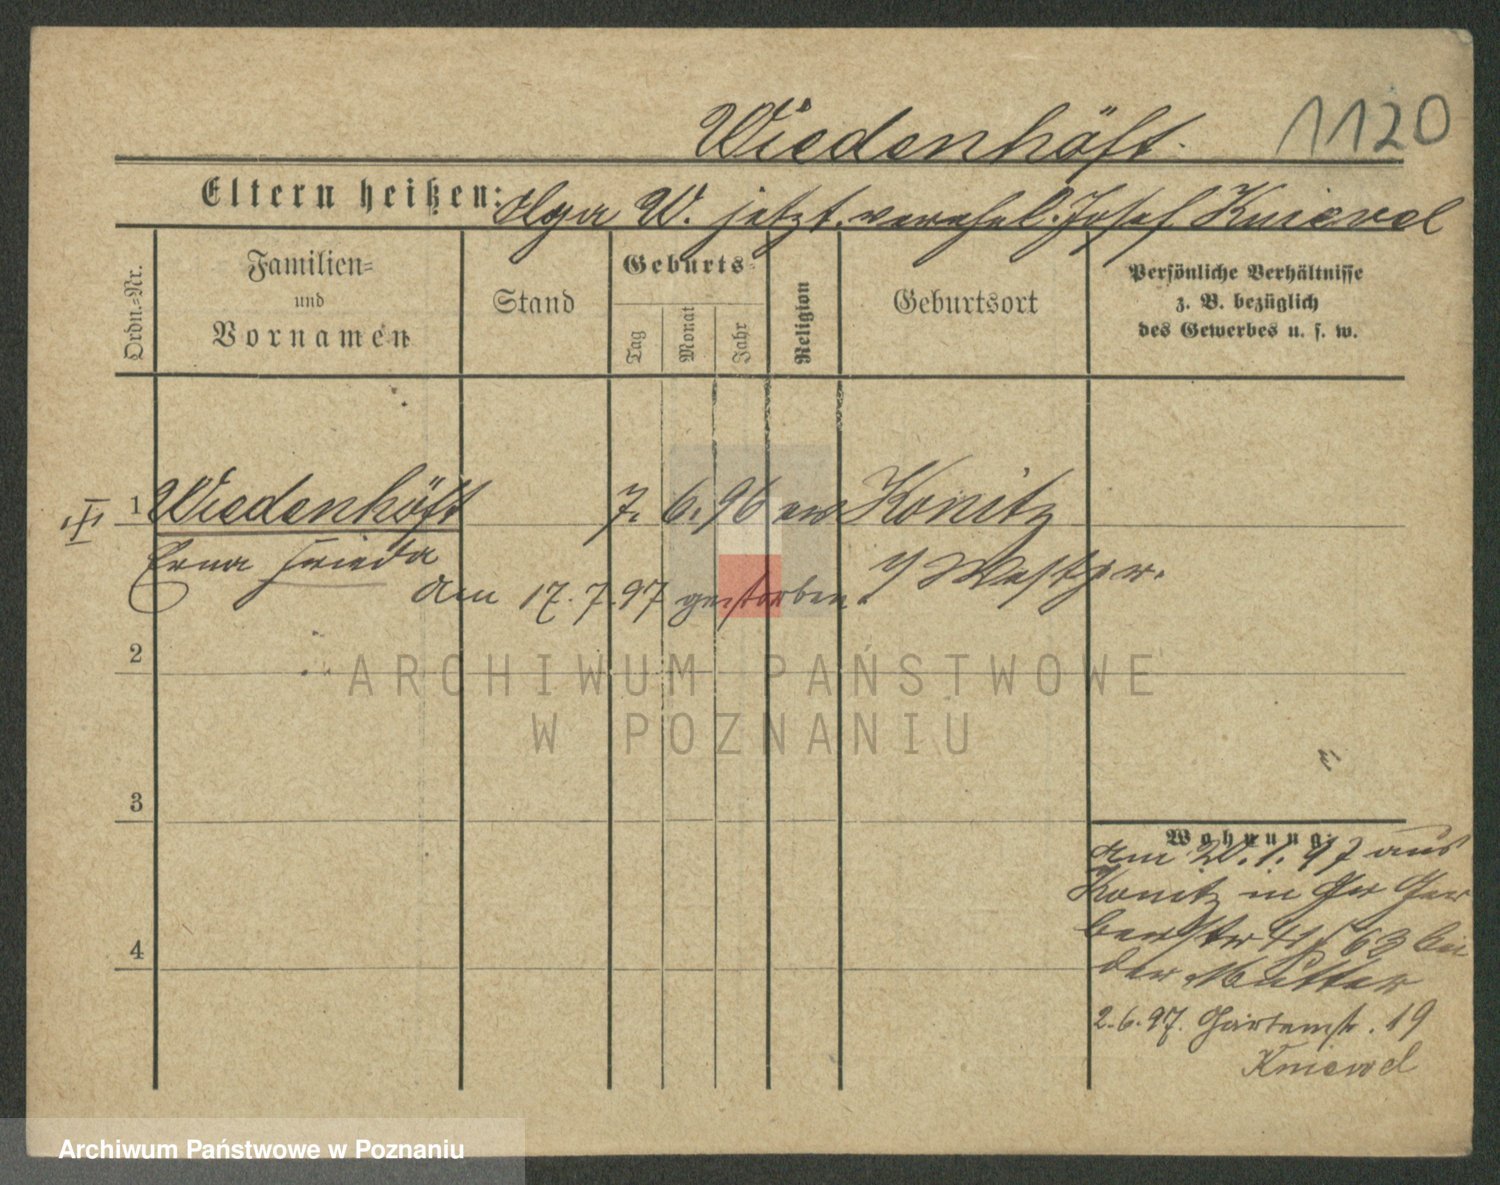 Wiedenhöft.
1120
Eltern heißen: Olga W. jetzt verehel. Josef Knievel
Ordn.-Nr.
Familien-
und
Vornamen
Stand
Geburts-
Tag
Monat
Jahr
Religion
Geburtsort
Persönliche Verhältnisse
z. B. bezüglich
des Gewerbes u. s. w.
1 Wiedenhöft 7. 6. 96 ev Konitz
Erna Frieda
i/Westpr.
am 17. 7. 97 gestorben.
2
ARCHIWUM PAŃSTWOWE
W POZNANIU
3
4
Wohnung:
am 20. 1. 97 aus
Konitz in Gr Ger
berstr 63 bei
der Mutter
2. 6. 97. Gartenstr. 19
Knievel
Archiwum Państwowe w Poznaniu